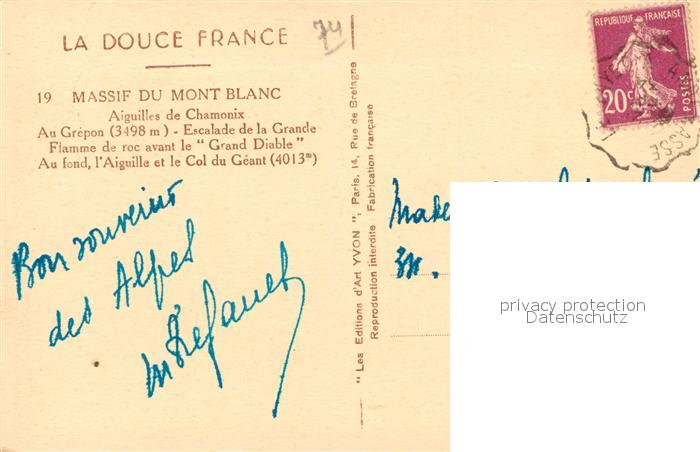 LA DOUCE FRANCE
74
19 MASSIF DU MONT BLANC
Aiguilles de Chamonix
Au Grépon (3498 m) - Escalade de la Grande
Flamme de roc avant le " Grand Diable "
Au fond, l'Aiguille et le Col du Géant (4013m)
Bon souvenir
des Alpes
" Les Editions d'Art YVON ", Paris, 14, Rue de Bretagne
Reproduction interdite Fabrication française
RÉPUBLIQUE FRANÇAISE
20c
POSTES
privacy protection
Datenschutz